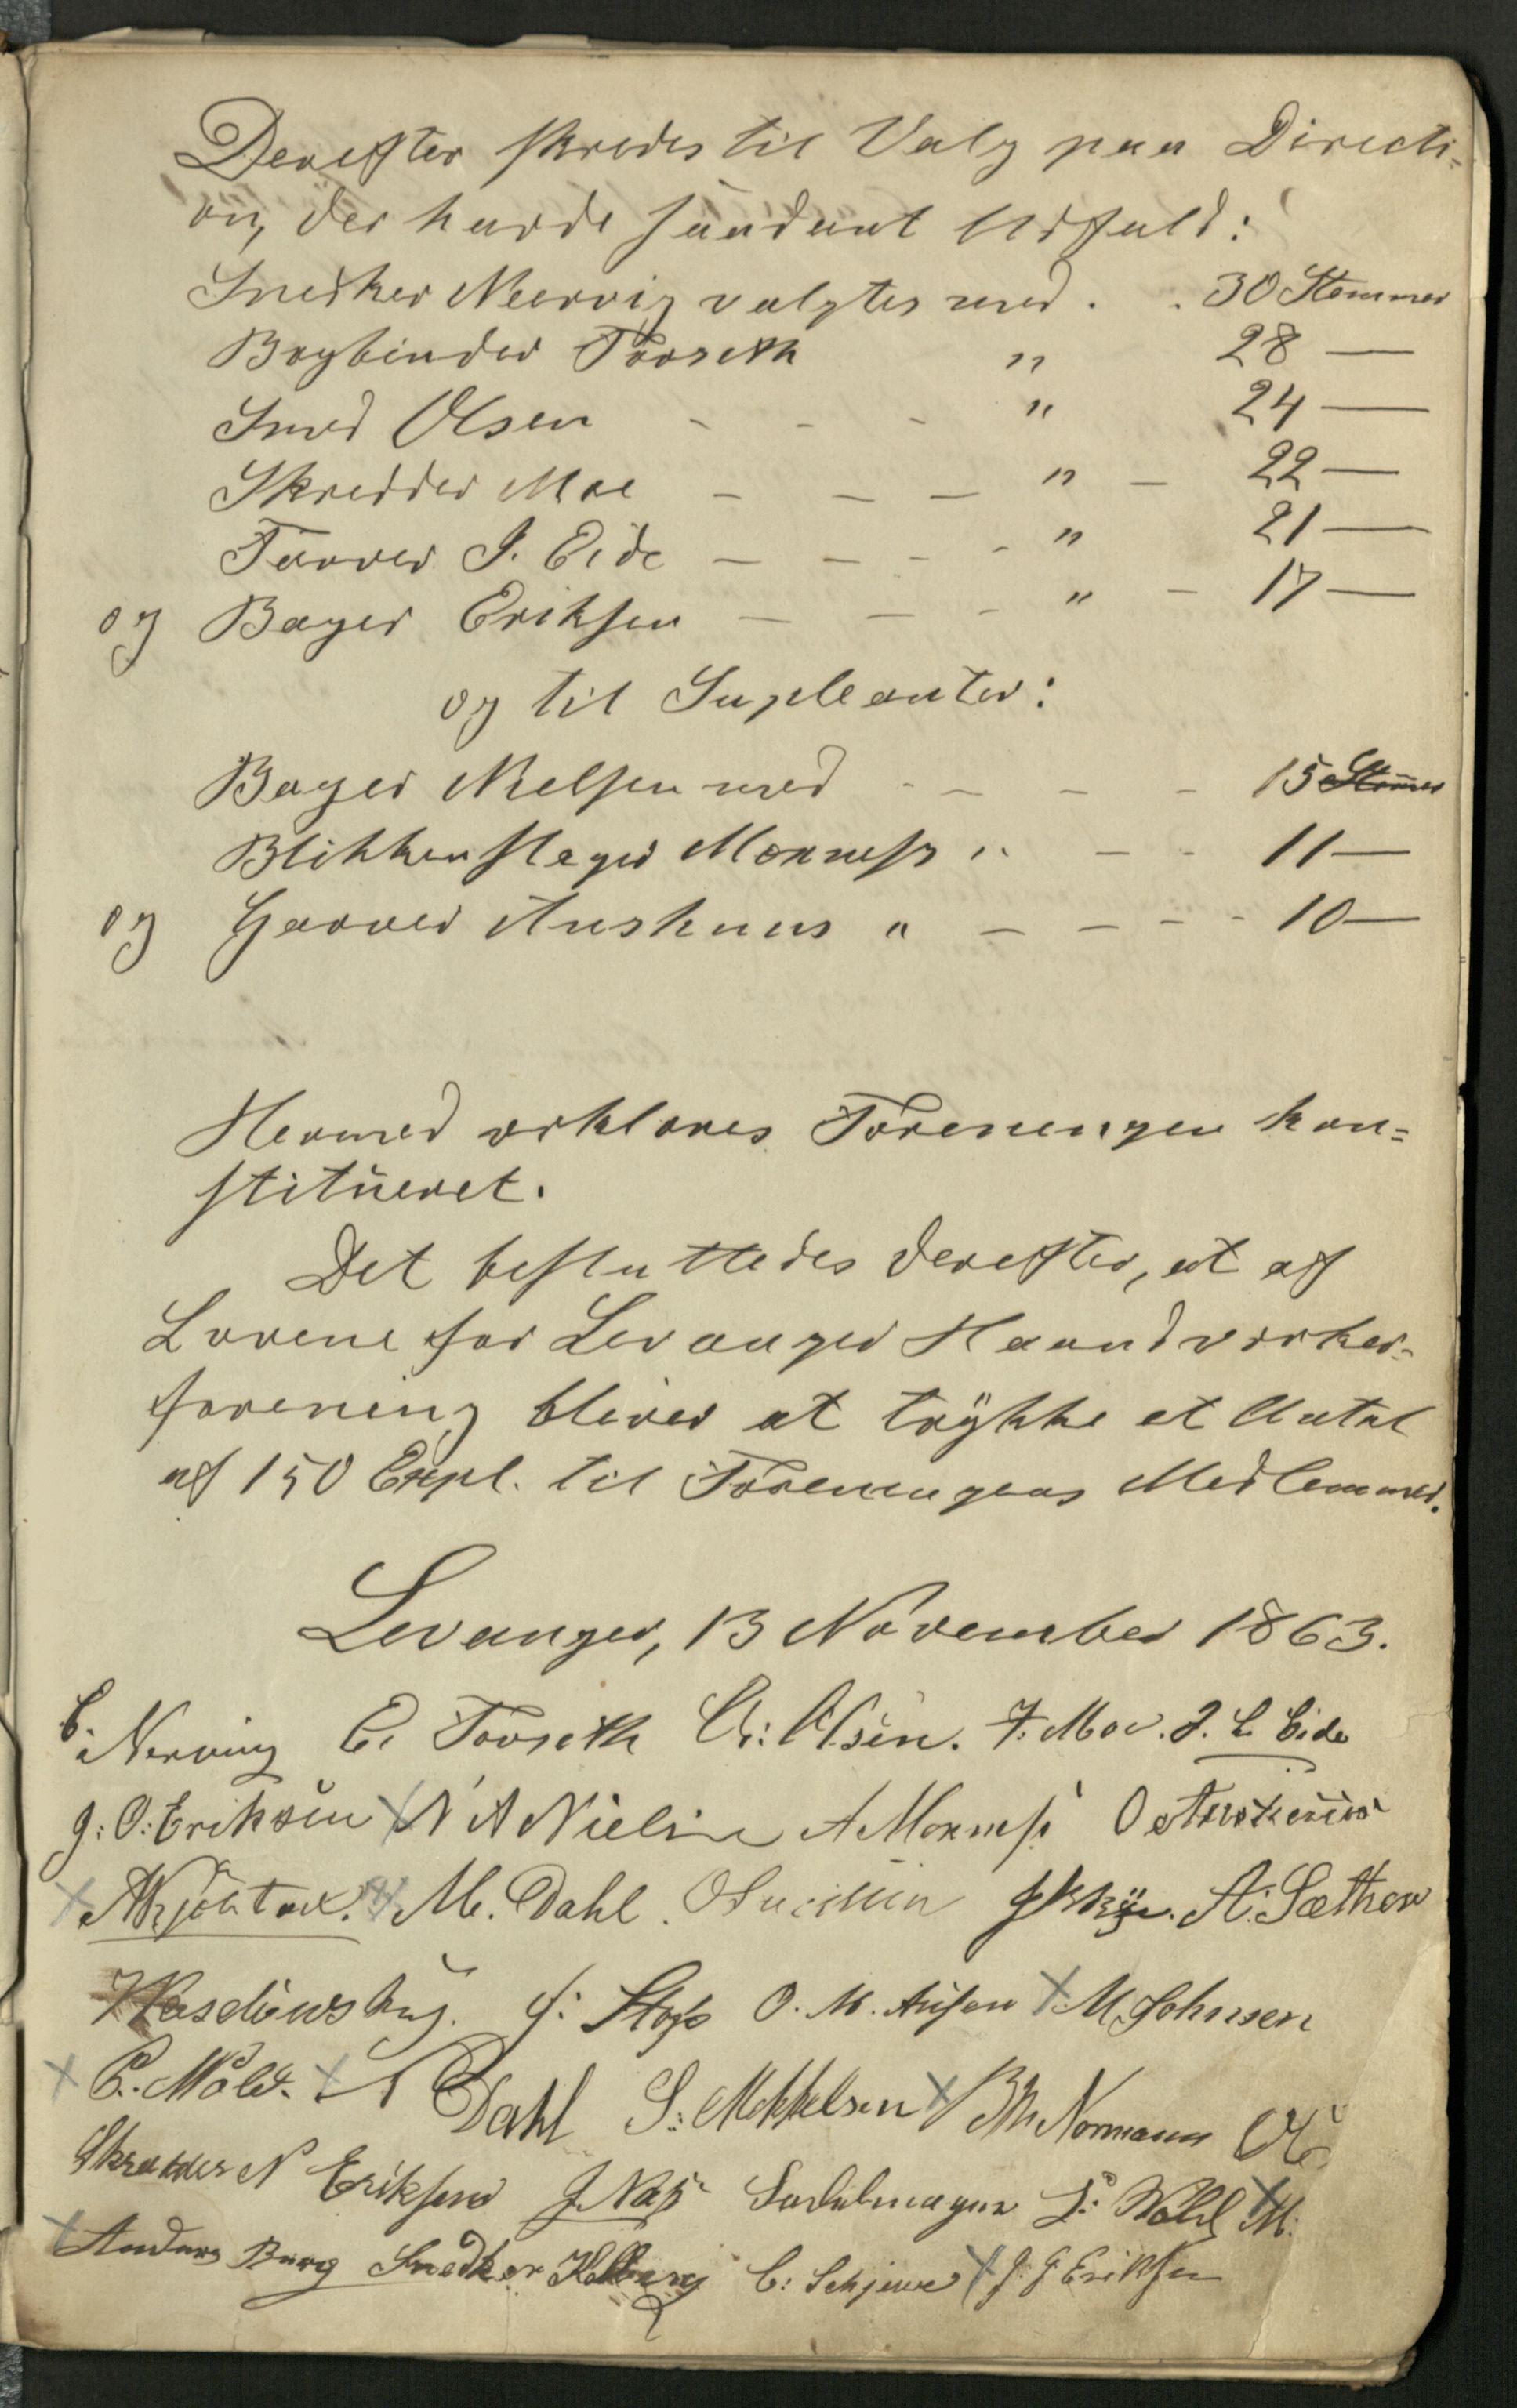 Derefter skredes til Valg paa Directi-
on, der havde saadant Udfald:
Snedker Neervig valgtes med . . 30 Stemmer
Bogbinder Forseth " 28 —
Smed Olsen - - - " 24 —
Skredder Moe — — — " — 22 —
Farver J. Eide — — - - " 21 —
og Bager Eriksen — — - " - 17 —
og til Supleanter:
Bager Nielsen med - - - - 15 Stemmer
Blikkenslager Monness " — - 11 —
og Garver Aushuus " — — - - 10 —
Hermed erklæres Foreningen kon=
stitueret.
Det besluttedes derefter, at af
Lovene for Levanger Haandværker-
forening bliver at trykke et Antal
af 150 Expl. til Foreningens Medlemmer.
Levanger, 13 November 1863.
C. Nervig E. Forseth Ch: Olsen. F. Moe. J. L Eide
J: O: Eriksen N A Nielsen A Monness O Aushuus
M. Dahl. A. Sæther
J: Stop O. M. M Johnsen
P. Mold. Dahl S: Mikkelsen Normann
Skræder N Eriksen J Næss Sadelmager L: Wold M:
Anders Burg Snedker C: Schjewe J: J Eriksen